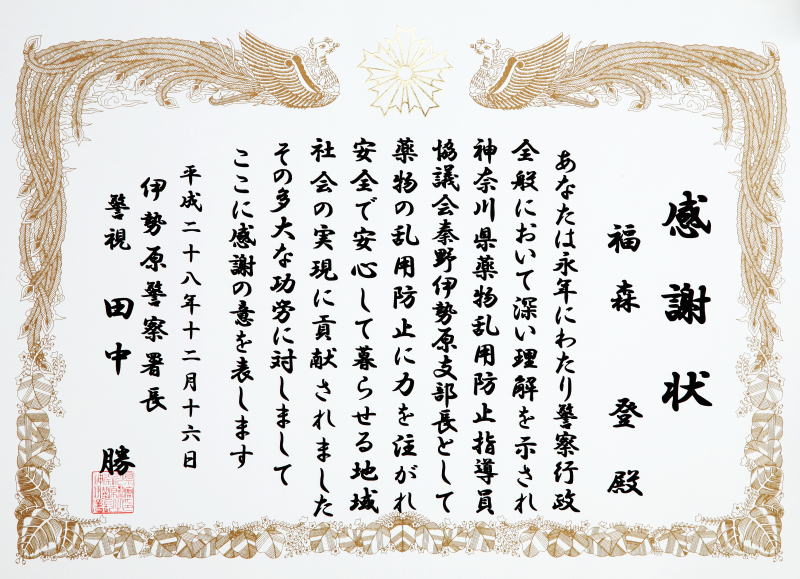 感謝状
福森 登 殿
あなたは永年にわたり警察行政
全般において深い理解を示され
神奈川県薬物乱用防止指導員
協議会秦野伊勢原支部長として
薬物の乱用防止に力を注がれ
安全で安心して暮らせる地域
社会の実現に貢献されました
その多大な功労に対しまして
ここに感謝の意を表します
平成二十八年十二月十六日
伊勢原警察署長
警視 田中 勝